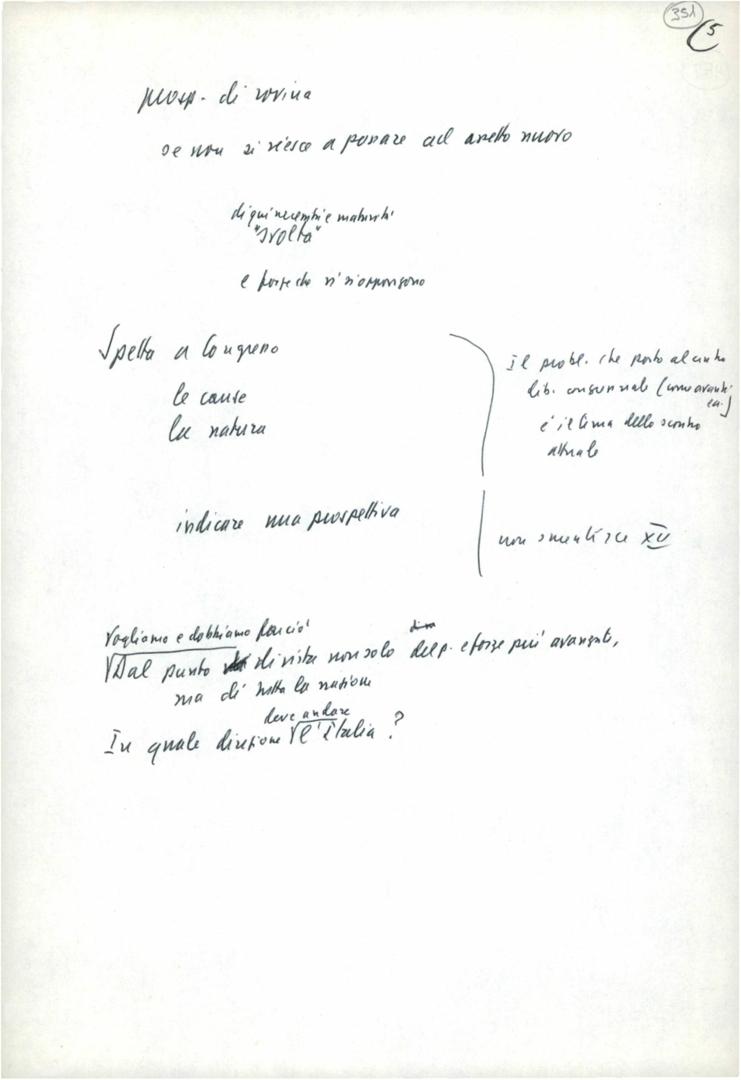 351
5
prosp. di rovina
se non si riesce a passare ad assetto nuovo
di qui necessità e maturità
"svolta"
e forze che vi si oppongono
Spetta a Congresso
le cause
la natura
indicare una prospettiva
Il probl. che posto al centro
lib. congressuale (come avanti
è il tema dello scontro
attuale
non smentisce XII
Vogliamo e dobbiamo farciò
Dal punto di vista non solo del p. e forze più avanzate,
ma di tutta la nazione
deve andare
In quale direzione l'Italia?